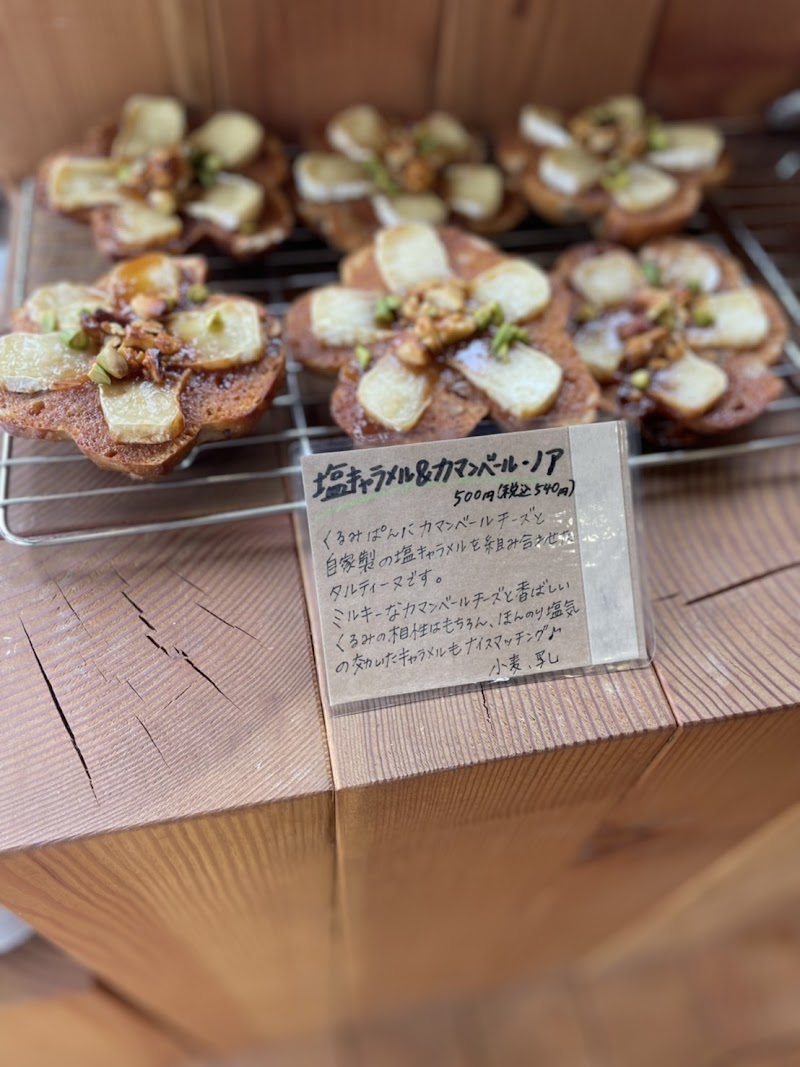 塩キャラメル&カマンベール・ノア
500円(税込540円)
くるみぱんにカマンベールチーズと
自家製の塩キャラメルを組み合わせた
タルティーヌです。
ミルキーなカマンベールチーズと香ばしい
くるみの相性はもちろん、ほんのり塩気
の効いたキャラメルもナイスマッチング♪
小麦、乳